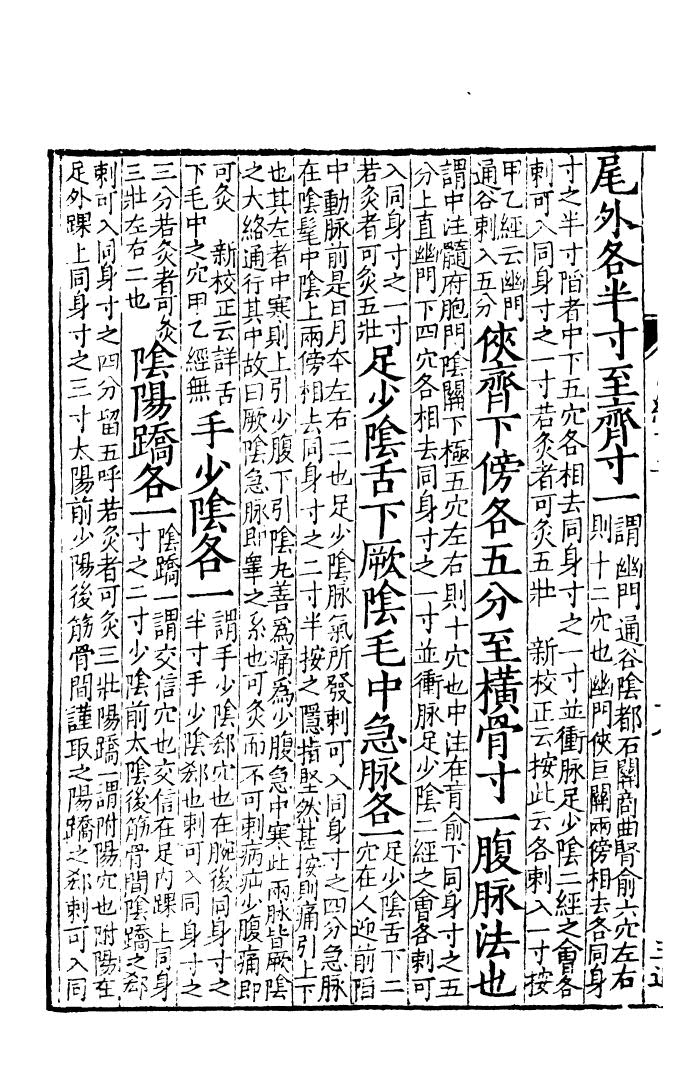 尾外各半寸至齊寸一
謂幽門通谷陰都石關商曲肓俞六穴左右
則十二穴也幽門俠巨闕兩傍相去各同身
寸之半寸䧟者中下五穴各相去同身寸之一寸並衝脉足少陰二經之會各
刺可入同身寸之一寸若灸者可灸五壯 新校正云按此云各刺入一寸按
甲乙經云幽門
通谷刺入五分
俠齊下傍各五分至橫骨寸一腹脉法也
謂中注髓府胞門陰關下極五穴左右則十穴也中注在肓俞下同身寸之五
分上直幽門下四穴各相去同身寸之一寸並衝脉足少陰二經之會各刺可
入同身寸之一寸
若灸者可灸五壯
足少陰舌下厥陰毛中急脉各一
足少陰舌下二
穴在人迎前䧟
中動脉前是日月夲左右二也足少陰脉氣所發刺可入同身寸之四分急脉
在陰髦中陰上兩傍相去同身寸之二寸半按之隱指堅然甚按則痛引上下
也其左者中寒則上引少腹下引陰丸善爲痛爲少腹急中寒此兩脉皆厥陰
之大絡通行其中故曰厥陰急脉即睾之系也可灸而不可刺病疝少腹痛即
可灸 新校正云詳舌
下毛中之穴甲乙經無
手少陰各一
謂手少陰郄穴也在腕後同身寸之
半寸手少陰郄也刺可入同身寸之
三分若灸者可灸
三壯左右二也
陰陽蹻各一
陰蹻一謂交信穴也交信在足内踝上同身
寸之二寸少陰前太陰後筋骨間陰蹻之郄
刺可入同身寸之四分留五呼若灸者可灸三壯陽蹻一謂附陽穴也附陽在
足外踝上同身寸之三寸太陽前少陽後筋骨間謹取之陽蹻之郄刺可入同